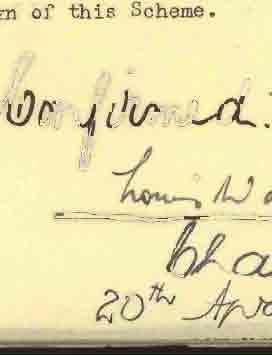 n of this Scheme.
Confirmed:
Louis W
Cha
20th Apr